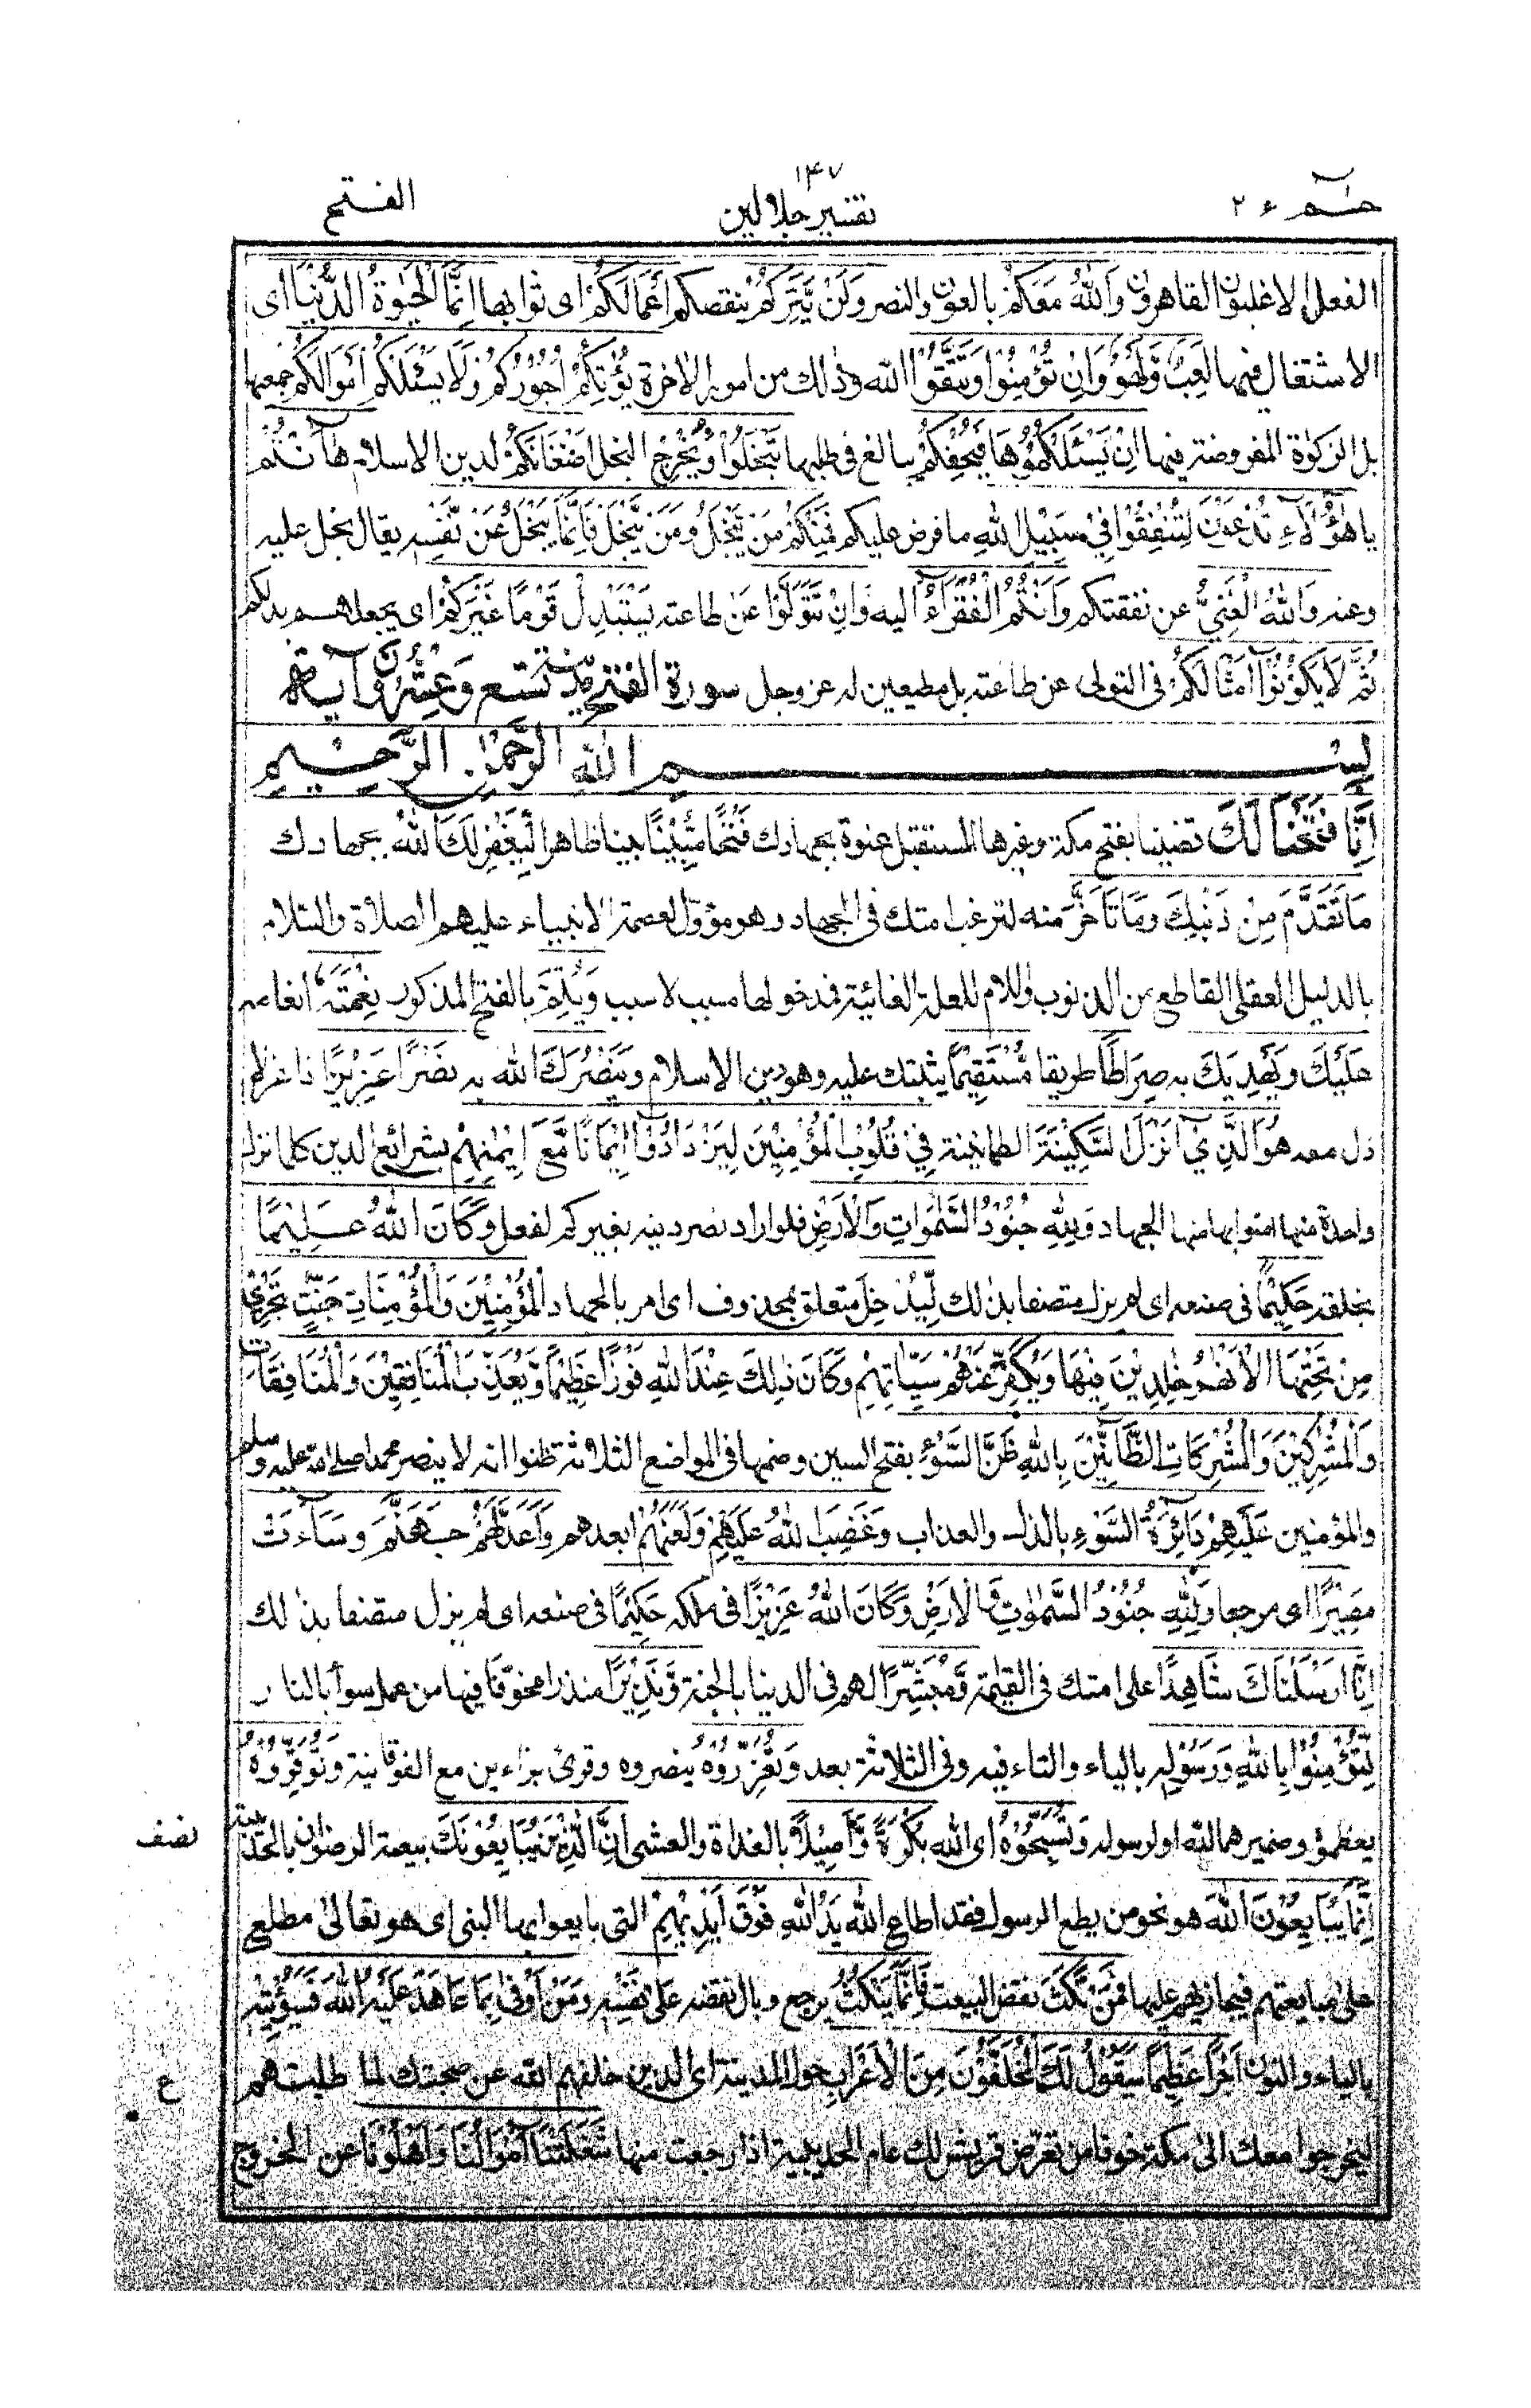 حٰـم ٢٦
١٤٧
تفسير جلالين
الفـتح
الفعل الاغلبون القاهرون وَاللّٰهُ مَعَكُمْ بالعون والنصر وَلَنْ يَّتِرَكُمْ ينقصكم اَعْمَالَكُمْ اى ثوابها اِنَّمَا الْحَيٰوةُ الدُّنْيَا اى
الاشتغال فيها لَعِبٌ وَّلَهْوٌ وَاِنْ تُؤْمِنُوْا وَتَتَّقُوْا اللّٰه وذٰلك من امور الاٰخرة يُؤْتِكُمْ اُجُوْرَكُمْ وَلَا يَسْئَلْكُمْ اَمْوَالَكُمْ جميعها
بل الزكوٰة المفروضة فيها اِنْ يَّسْئَلْكُمُوْهَا فَيُحْفِكُمْ يبالغ فى طلبها تَبْخَلُوْا وَيُخْرِجْ البخل اَضْغَانَكُمْ لدين الاسلام هَآ اَنْتُمْ
يا هٰٓؤُلَآءِ تُدْعَوْنَ لِتُنْفِقُوْا فِيْ سَبِيْلِ اللّٰهِ ما فرض عليكم فَمِنْكُمْ مَنْ يَّبْخَلُ وَمَنْ يَّبْخَلْ فَاِنَّمَا يَبْخَلُ عَنْ نَّفْسِهٖ يقال بخل عليه
وعنه وَاللّٰهُ الْغَنِيُّ عن نفقتكم وَاَنْتُمُ الْفُقَرَآءُ اليه وَاِنْ تَتَوَلَّوْا عَنْ طاعته يَسْتَبْدِلْ قَوْمًا غَيْرَكُمْ اى يجعلهم بدلكم
ثُمَّ لَا يَكُوْنُوْٓا اَمْثَالَكُمْ فى التولى عن طاعته بل مطيعين له عز وجل سورة الفتح مدنية تسع وعشرون آية
بِسْمِ اللّٰهِ الرَّحْمٰنِ الرَّحِيْمِ
اِنَّا فَتَحْنَا لَكَ قضينا بفتح مكة وغيرها المستقبل عنوة بجهادك فَتْحًا مُّبِيْنًا بينا ظاهرا لِّيَغْفِرَ لَكَ اللّٰهُ بجهادك
مَا تَقَدَّمَ مِنْ ذَنْبِكَ وَمَا تَاَخَّرَ منه لترغب امتك فى الجهاد وهو مؤوّل لعصمة الانبياء عليهم الصلاة والسلام
بالدليل العقلى القاطع من الذنوب واللام للعلة الغائية فمدخولها مسبب لا سبب وَيُتِمَّ بالفتح المذكور نِعْمَتَهٗ انعامه
عَلَيْكَ وَيَهْدِيَكَ به صِرَاطًا طريقا مُّسْتَقِيْمًا يثبتك عليه وهو دين الاسلام وَيَنْصُرَكَ اللّٰه به نَصْرًا عَزِيْزًا ذا عز لا
ذل معه هُوَ الَّذِيْٓ اَنْزَلَ السَّكِيْنَةَ الطمانينة فِيْ قُلُوْبِ الْمُؤْمِنِيْنَ لِيَزْدَادُوْٓا اِيْمَانًا مَّعَ اِيْمٰنِهِمْ بشرائع الدين كلما نزل
واحدة منها امنوا بها منها الجهاد وَلِلّٰهِ جُنُوْدُ السَّمٰوَاتِ وَالْاَرْضِ فلو اراد نصر دينه بغيركم لفعل وَكَانَ اللّٰهُ عَلِيْمًا
بخلقه حَكِيْمًا فى صنعه اى لم يزل متصفا بذٰلك لِّيُدْخِلَ متعلق بمحذوف اى امر بالجهاد الْمُؤْمِنِيْنَ وَالْمُؤْمِنَاتِ جَنّٰتٍ تَجْرِيْ
مِنْ تَحْتِهَا الْاَنْهٰرُ خٰلِدِيْنَ فِيْهَا وَيُكَفِّرَ عَنْهُمْ سَيِّاٰتِهِمْ وَكَانَ ذٰلِكَ عِنْدَ اللّٰهِ فَوْزًا عَظِيْمًا وَّيُعَذِّبَ الْمُنَافِقِيْنَ وَالْمُنَافِقَاتِ
وَالْمُشْرِكِيْنَ وَالْمُشْرِكَاتِ الظَّآنِّيْنَ بِاللّٰهِ ظَنَّ السَّوْءِ بفتح السين وضمها فى المواضع الثلاثة ظنوا انه لا ينصر محمدا صلى الله عليه وسلم
والمؤمنين عَلَيْهِمْ دَآئِرَةُ السَّوْءِ بالذل والعذاب وَغَضِبَ اللّٰهُ عَلَيْهِمْ وَلَعَنَهُمْ ابعدهم وَاَعَدَّ لَهُمْ جَهَنَّمَ وَسَآءَتْ
مَصِيْرًا اى مرجعا وَلِلّٰهِ جُنُوْدُ السَّمٰوٰتِ وَالْاَرْضِ وَكَانَ اللّٰهُ عَزِيْزًا فى ملكه حَكِيْمًا فى صنعه اى لم يزل متصفا بذٰلك
اِنَّا اَرْسَلْنَاكَ شَاهِدًا على امتك فى القيٰمة وَّمُبَشِّرًا لهم فى الدنيا بالجنة وَّنَذِيْرًا منذرا مخوّفا فيها من عمل سوأ بالنار
لِّتُؤْمِنُوْا بِاللّٰهِ وَرَسُوْلِهٖ بالياء والتاء فيه وفى الثلاثة بعد وَتُعَزِّرُوْهُ ينصروه وقرئ بزاءين مع الفوقانية وَتُوَقِّرُوْهُ
يعظموه وضميرهما للّٰه او لرسوله وَتُسَبِّحُوْهُ اى اللّٰه بُكْرَةً وَّاَصِيْلًا بالغداة والعشى اِنَّ الَّذِيْنَ يُبَايِعُوْنَكَ بيعة الرضوان بالحديبية
نصف
اِنَّمَا يُبَايِعُوْنَ اللّٰهَ هو نحو من يطع الرسول فقد اطاع اللّٰه يَدُ اللّٰهِ فَوْقَ اَيْدِيْهِمْ التى بايعوا بها النبى اى هو تعالىٰ مطلع
علىٰ مبايعتهم فيجازيهم عليها فَمَنْ نَّكَثَ نقض البيعة فَاِنَّمَا يَنْكُثُ يرجع وبال نقضه عَلٰى نَفْسِهٖ وَمَنْ اَوْفٰى بِمَا عَاهَدَ عَلَيْهُ اللّٰهَ فَسَيُؤْتِيْهِ
بالياء والنون اَجْرًا عَظِيْمًا سَيَقُوْلُ لَكَ الْمُخَلَّفُوْنَ مِنَ الْاَعْرَابِ حول المدينة اى الذين خلفهم اللّٰه عن صحبتك لما طلبتهم
ع
ليخرجوا معك الىٰ مكة خوفا من تعرّض قريش لك عام الحديبية اذا رجعت منها شَغَلَتْنَآ اَمْوَالُنَا وَاَهْلُوْنَا عن الخروج